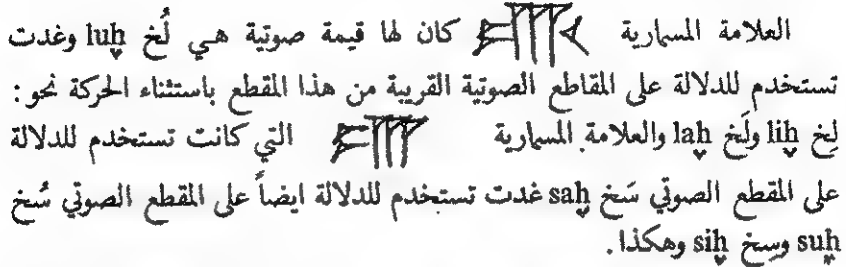 العلامة المسمارية كان لها قيمة صوتية هي لُخ luḫ وغدت
تستخدم للدلالة على المقاطع الصوتية القريبة من هذا المقطع باستثناء الحركة نحو :
لِخ liḫ ولَخ laḫ والعلامة المسمارية التي كانت تستخدم للدلالة
على المقطع الصوتي سَخ saḫ غدت تستخدم للدلالة ايضاً على المقطع الصوتي سُخ
suḫ وسِخ siḫ وهكذا .